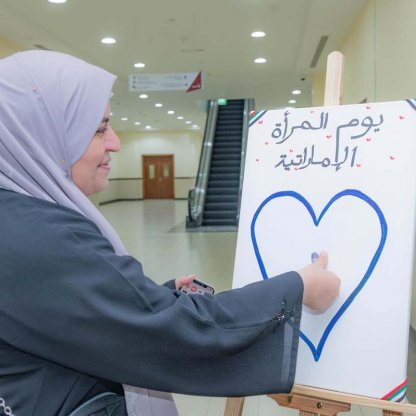 يوم المرأة
الإماراتية